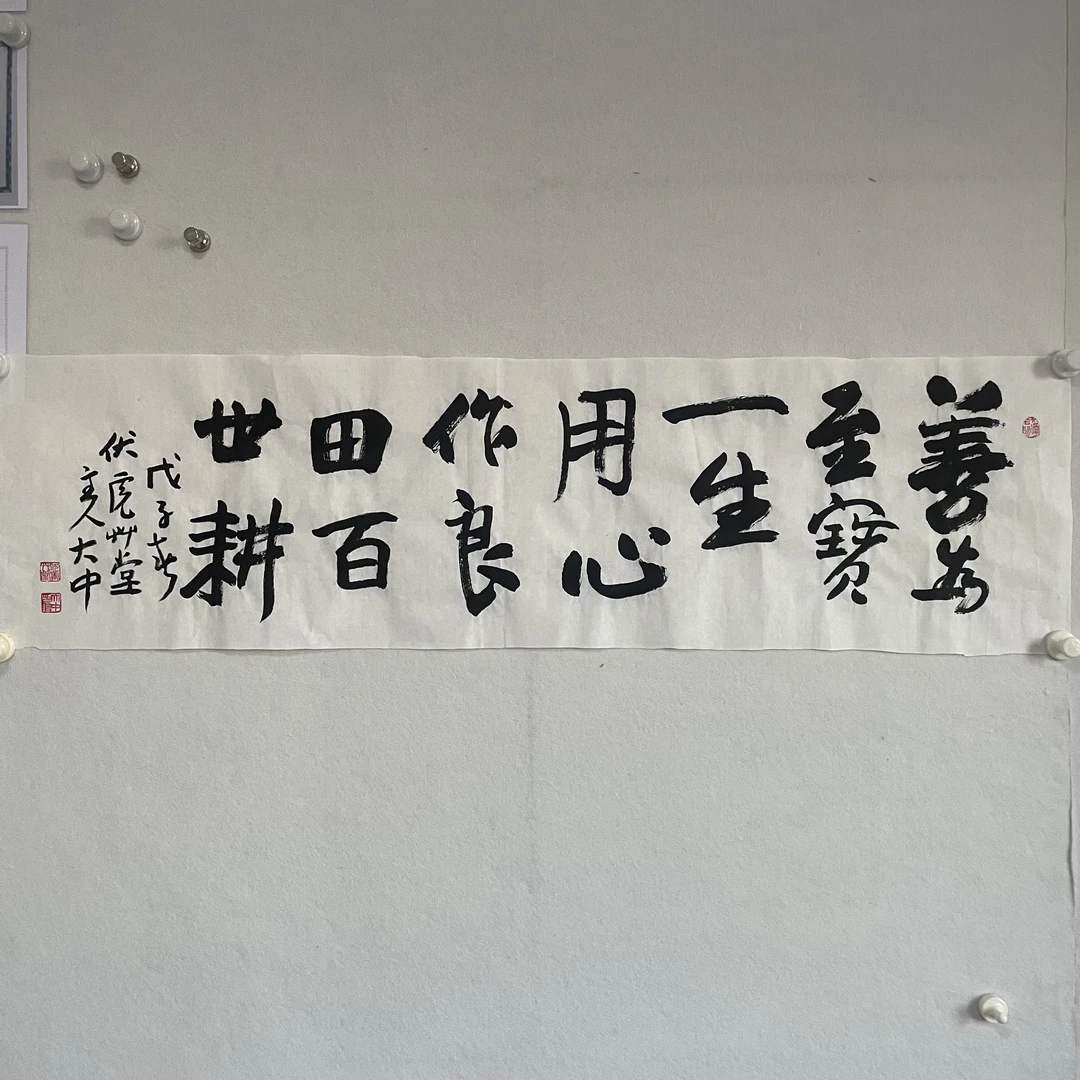 善為
至寶
一生
用心
作良
田百
世耕
戊子春
伏虎艸堂
主人大中